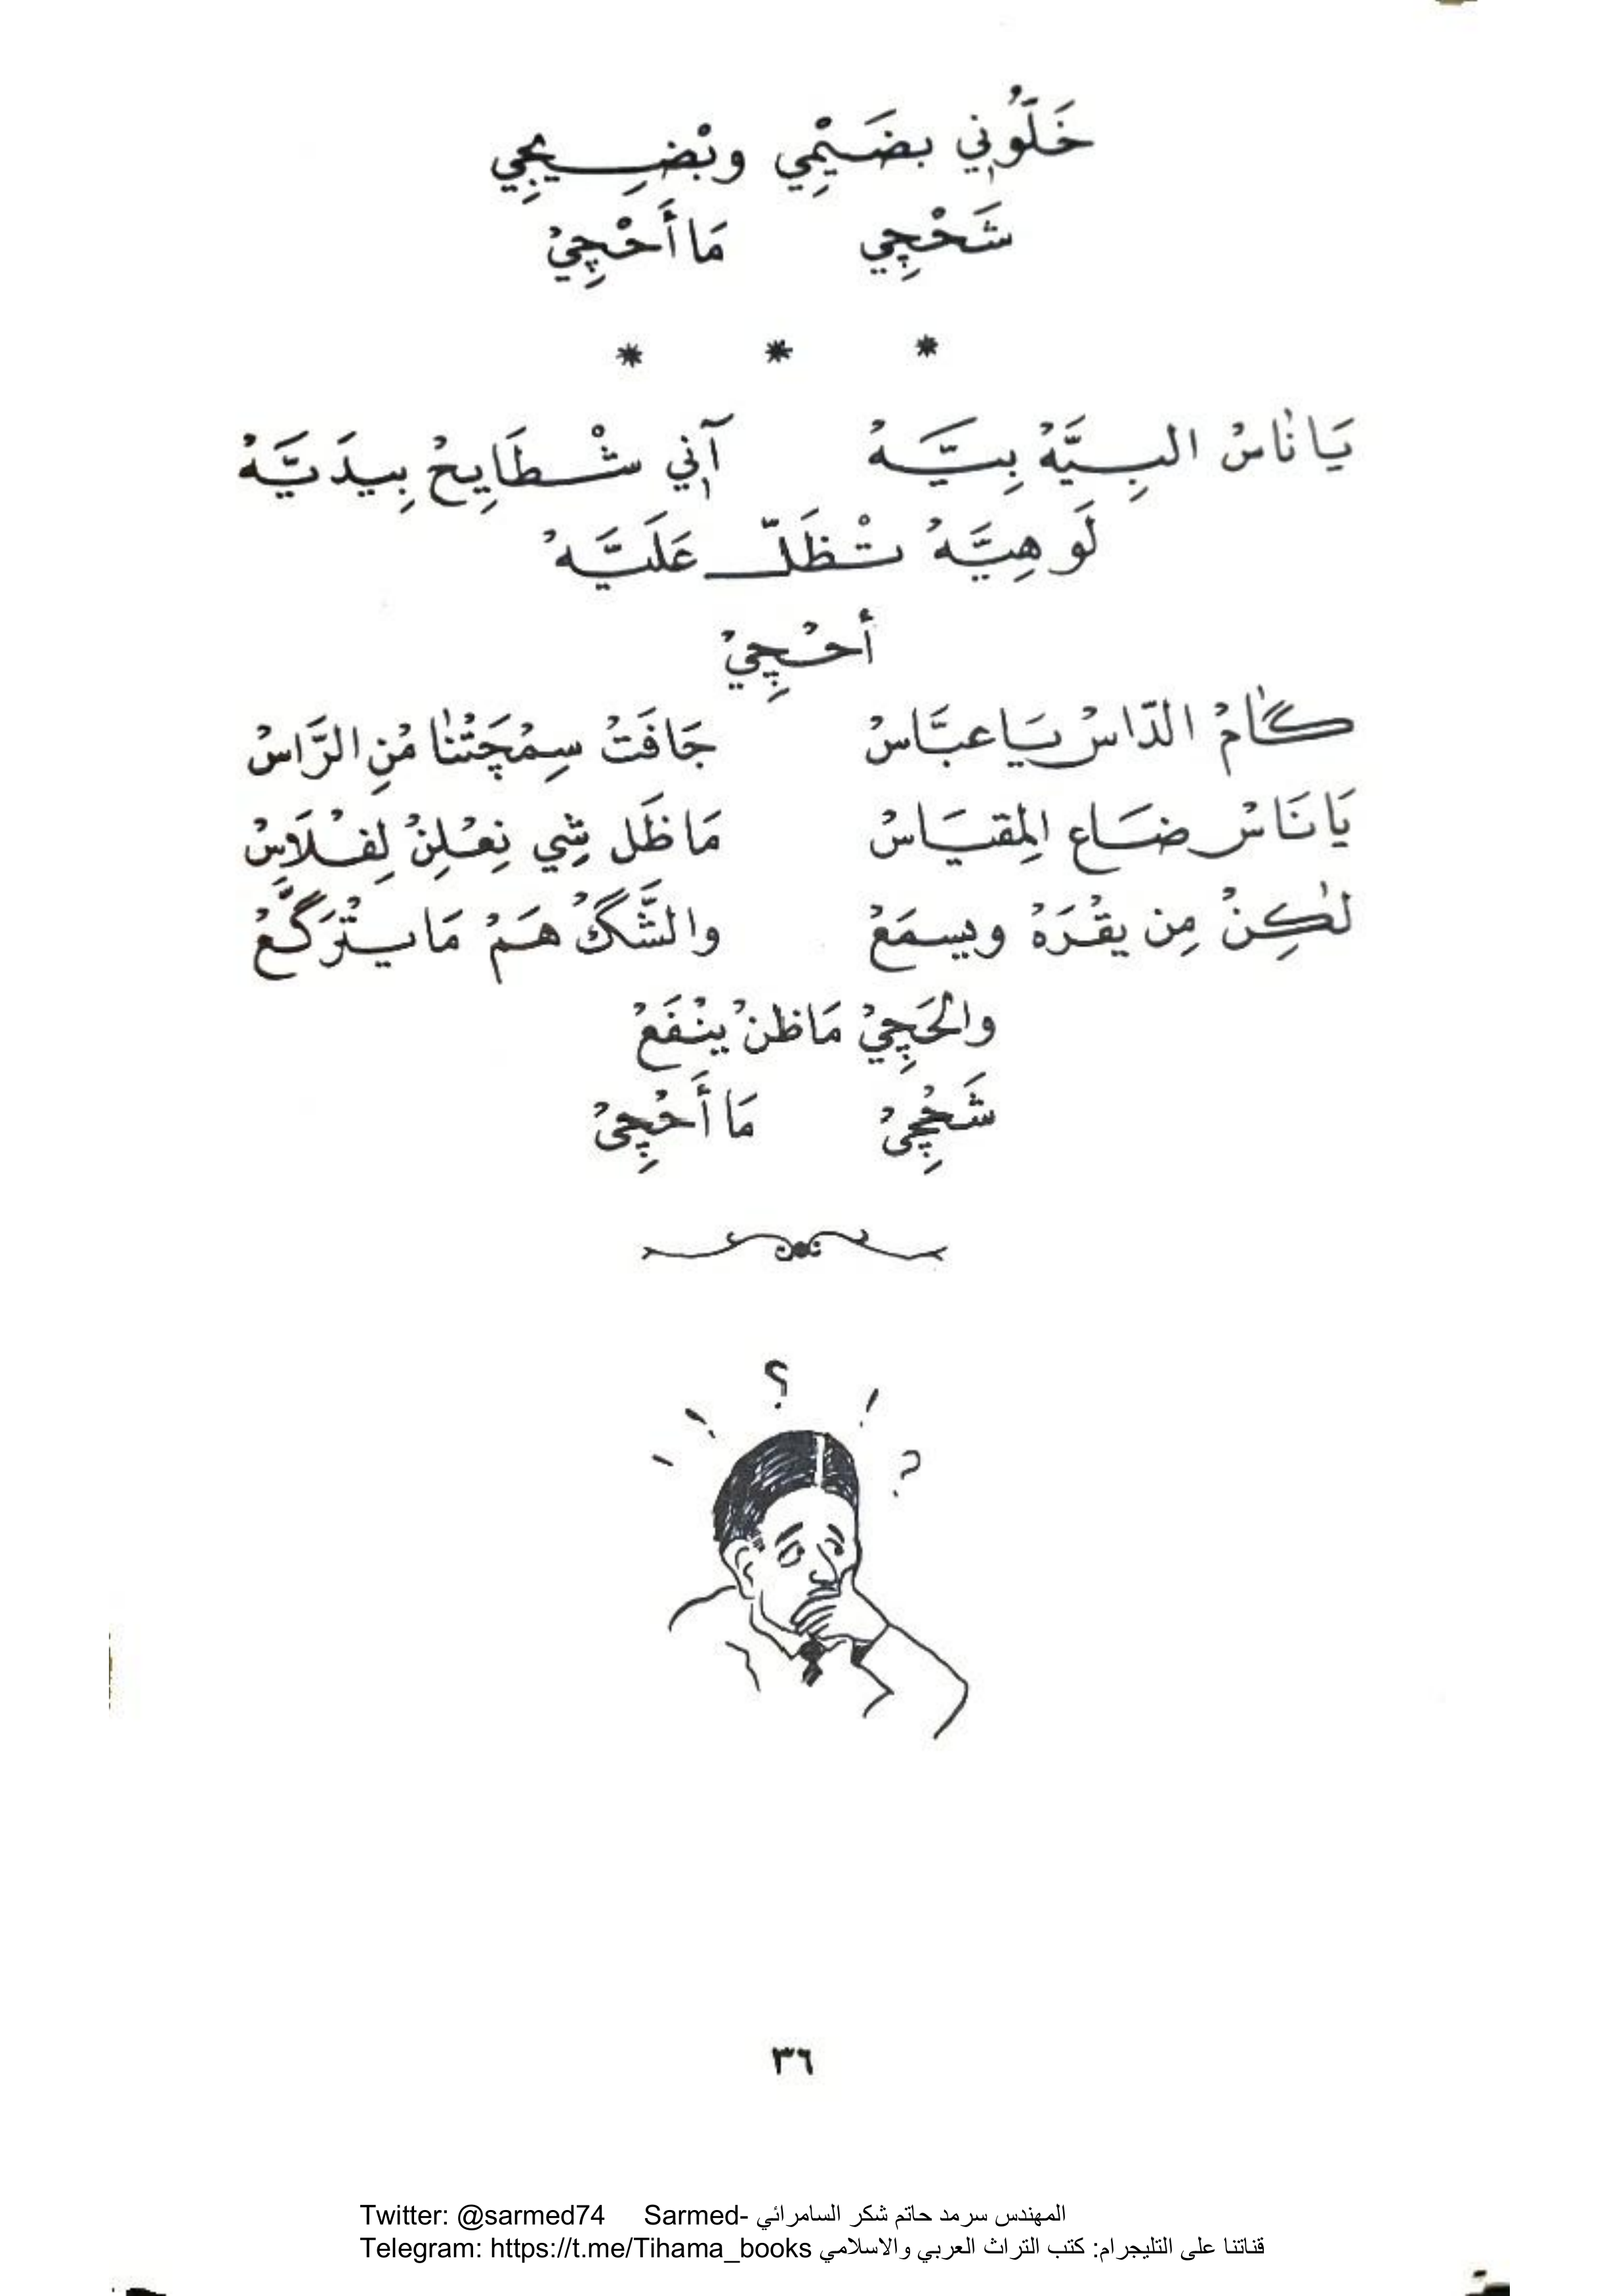 خَلُّوني بضَيْمِي وبْضِيجِي
شَحْچِي مَا أَحْچِيْ
* * *
يَا نَاسْ البِيَّهْ بِيَّهْ آني شْطَايِحْ بِيدَيَّهْ
لَو هِيَّهْ تْظَلّ عَلَيَّهْ
أحْچِيْ
گامْ الدّاسْ يَا عبَّاسْ جَافَتْ سِمْچَتْنا مْنِ الرَّاسْ
يَا نَاسْ ضَاع المِقيَاسْ مَا ظَل شِي نِعْلِنْ لِفْلَاسْ
لكِنْ مِن يقْرَهْ ويسمَعْ والشَّگْ هَمْ مَا يسْتَرَگَّعْ
والحَچِيْ مَا ظنْ ينْفَعْ
شَحْچِيْ مَا أَحْچِيْ
؟ ! ! ؟
٣٦
Twitter: @sarmed74 Sarmed- المهندس سرمد حاتم شكر السامرائي
Telegram: https://t.me/Tihama_books قناتنا على التليجرام: كتب التراث العربي والاسلامي